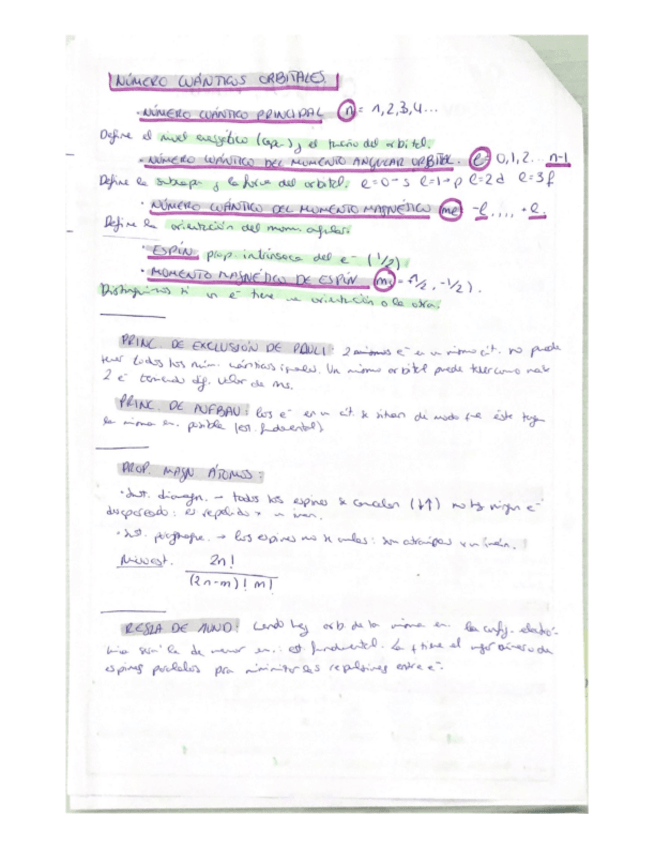 NÚMERO CUÁNTICOS ORBITALES.
· NÚMERO CUÁNTICO PRINCIPAL n = 1,2,3,4...
Define el nivel energético (capa) y el tamaño del orbital.
· NÚMERO CUÁNTICO DEL MOMENTO ANGULAR ORBITAL. l = 0,1,2... n-1
Define la subcapa y la forma del orbital. l=0→s l=1→p l=2 d l=3 f
· NÚMERO CUÁNTICO DEL MOMENTO MAGNÉTICO ml -l,..., +l.
Define la orientación del mom. angular.
· ESPÍN prop intrínseca del e⁻ (1/2)
· MOMENTO MAGNÉTICO DE ESPÍN (1/2, -1/2).
Distinguimos si un e⁻ tiene una orientación o la otra.
PRINC. DE EXCLUSIÓN DE PAULI: 2 e⁻ en un mismo át. no puede
tener todos los núm. cuánticos iguales. Un mismo orbital puede tener como máx
2 e⁻ tomando dif. valor de ms.
PRINC. DE AUFBAU: los e⁻ en un át. se sitúan de modo que éste tenga
la mínima en. posible (est. fundamental)
PROP. MAGN ÁTOMOS:
· Sust. diamagn. → todos los espines se cancelan (↓↑) no hay ningún e⁻
desapareado: es repelido x un imán.
· Sust. paramagn. → los espines no se anulan: son atraídas x un imán.
2n!
(2n-m)! m!
REGLA DE HUND: Cuando hay orb. de la misma en. la config. electró-
nica será la de menor en.: est. fundamental. La q tiene el mayor número de
espines paralelos para minimizar las repulsiones entre e⁻.